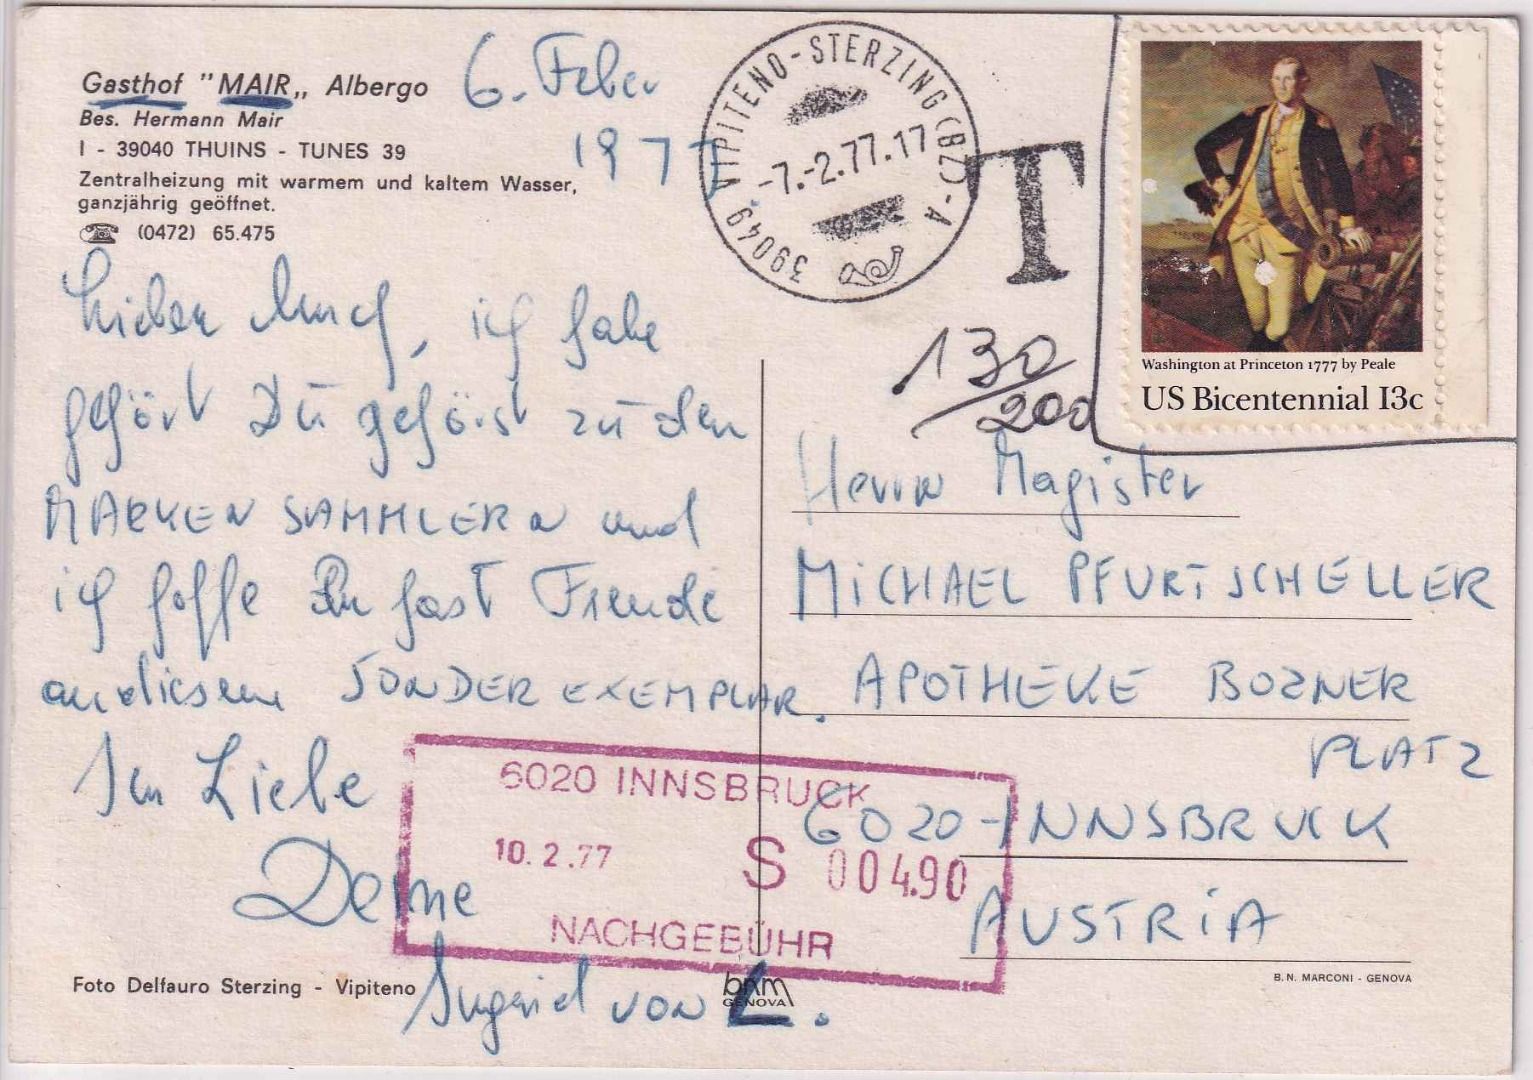 Gasthof "MAIR„ Albergo
Bes. Hermann Mair
I - 39040 THUINS - TUNES 39
Zentralheizung mit warmem und kaltem Wasser,
ganzjährig geöffnet.
(0472) 65.475
6. Feber
1977
39049 VIPITENO-STERZING (BZ) - A
-7.-2.77.17
T
130/200
Washington at Princeton 1777 by Peale
US Bicentennial 13c
Lieber, ich habe
gehört Du gehörst zu den
MARKEN SAMMLERN und
ich hoffe Du hast Freude
an diesem SONDER EXEMPLAR.
In Liebe
Deine
Ingrid von L.
Herrn Magister
MICHAEL PFURTSCHELLER
APOTHEKE BOZNER
PLATZ
6020-INNSBRUCK
AUSTRIA
6020 INNSBRUCK
10. 2. 77 S 004.90
NACHGEBÜHR
Foto Delfauro Sterzing - Vipiteno
bnm
GENOVA
B. N. MARCONI - GENOVA